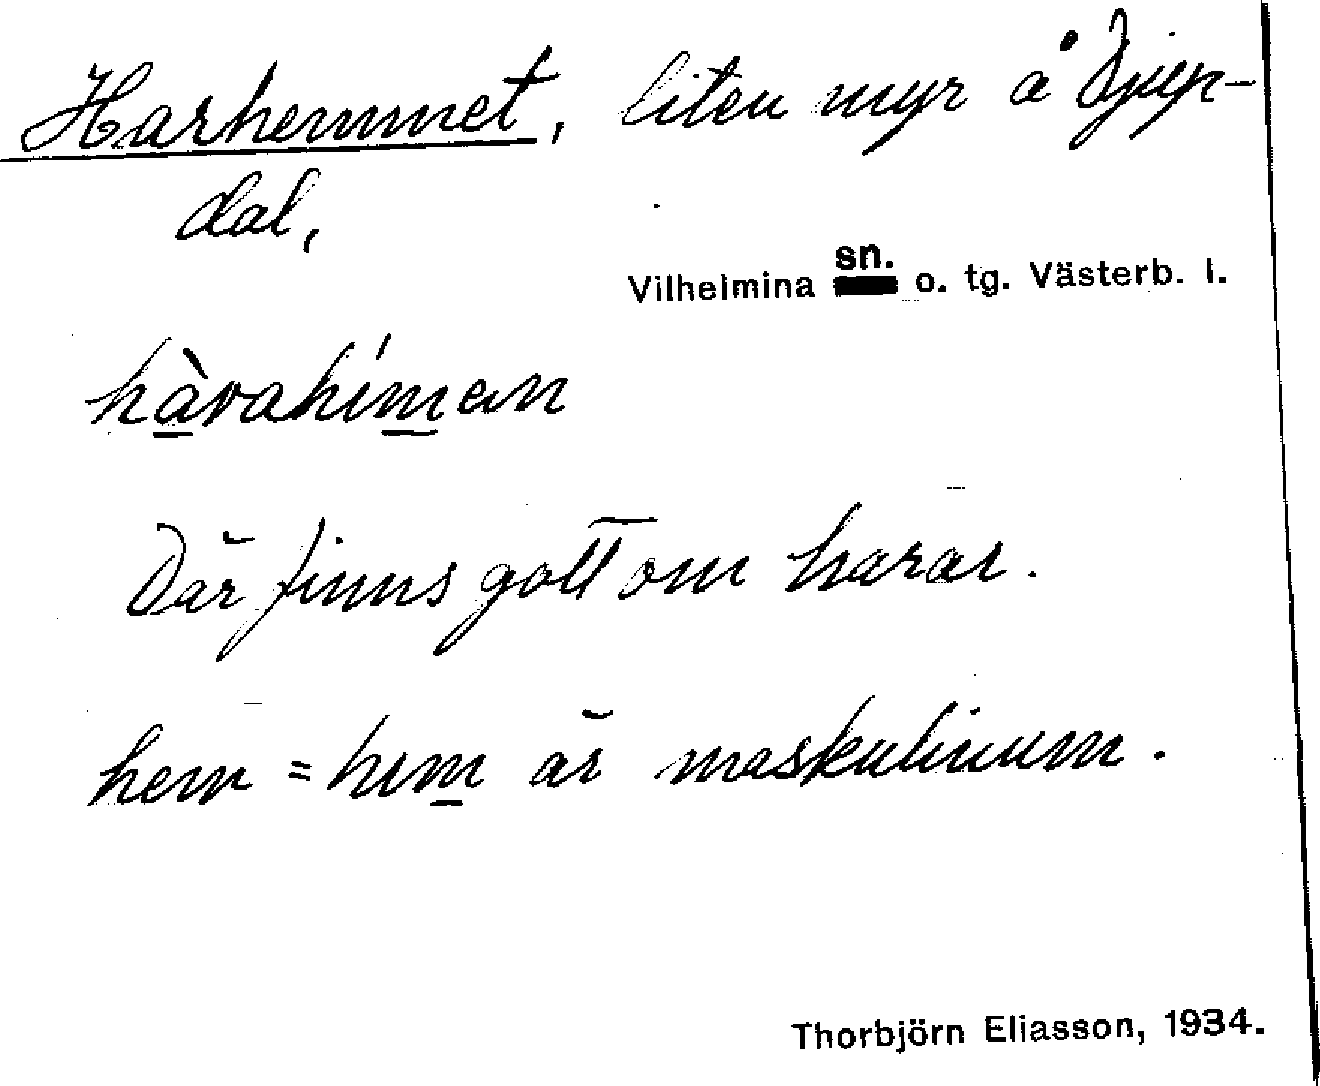 Harhemmet, liten myr å Djup-
dal,
Vilhelmina sn. o. tg. Västerb. l.
hàrahíman
Där finns gott om harar.
hem = him är maskulinum.
Thorbjörn Eliasson, 1934.